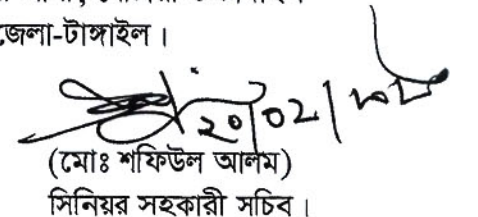 জেলা-টাঙ্গাইল।
২০/০২/
(মোঃ শফিউল আলম)
সিনিয়র সহকারী সচিব।